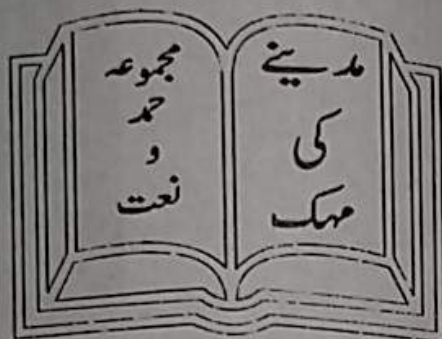 مدینے
کی
مہک
مجموعہ
حمد
و
نعت